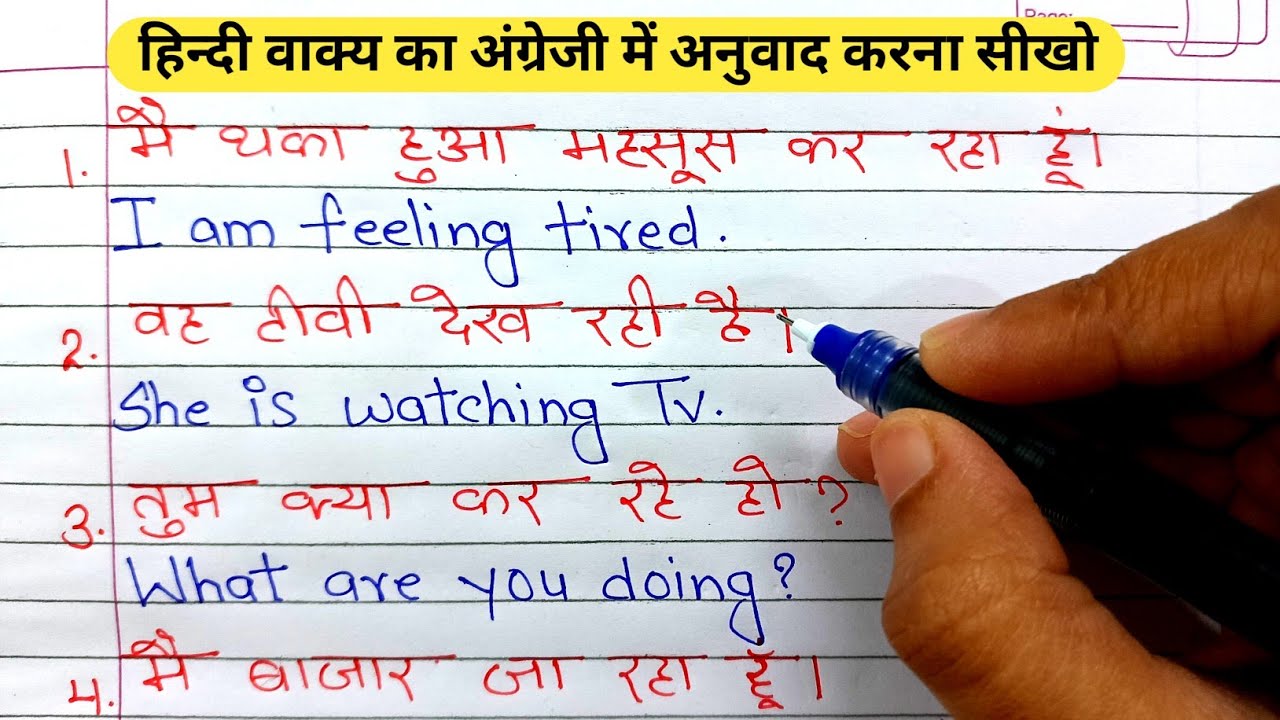 Page:
हिन्दी वाक्य का अंग्रेजी में अनुवाद करना सीखो
1. मै थका हुआ महसूस कर रहा हूं।
I am feeling tired.
2. वह टीवी देख रही है।
She is watching Tv.
3. तुम क्या कर रहे हो ?
What are you doing?
4. मै बाजार जा रहा हूँ।